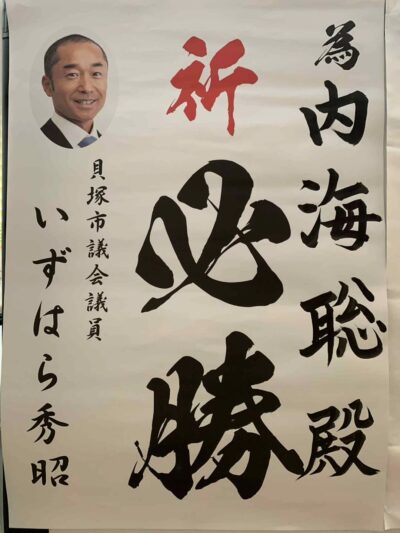 為内海聡殿
祈必勝
貝塚市議会議員
いずはら秀昭